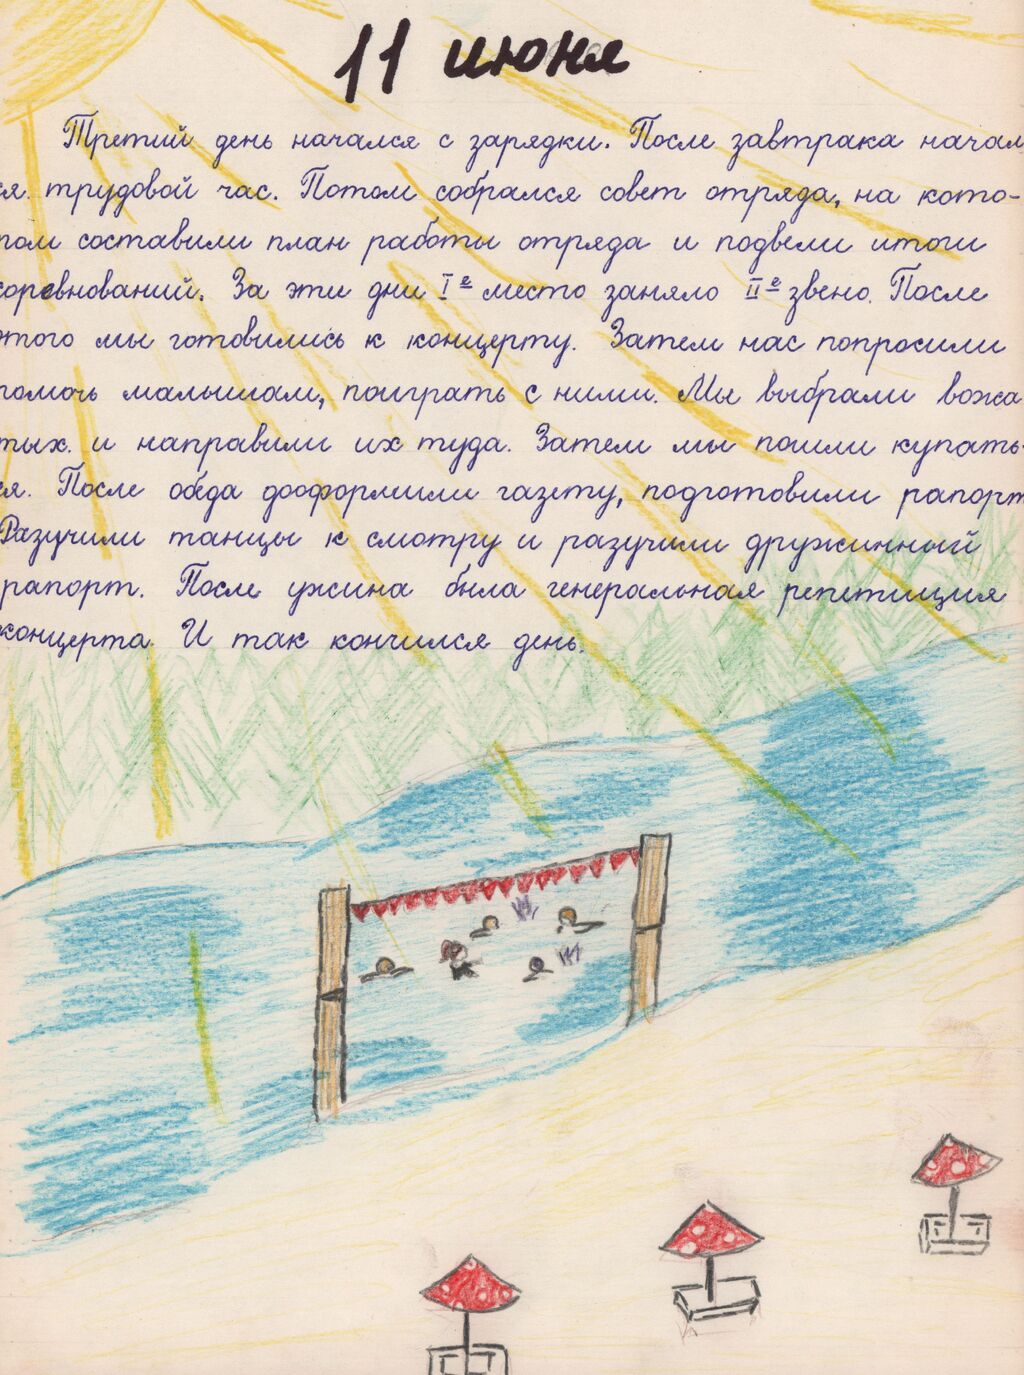 11 июня
Третий день начался с зарядки. После завтрака начал
ся трудовой час. Потом собрался совет отряда, на кото-
ром составили план работы отряда и подвели итоги
соревнований. За эти дни I е место заняло II е звено. После
этого мы готовились к концерту. Затем нас попросили
помочь малышам, поиграть с ними. Мы выбрали вожа
тых и направили их туда. Затем мы пошли купать-
ся. После обеда дооформили газету, подготовили рапорт
Разучили танцы к смотру и разучили дружинный
рапорт. После ужина была генеральная репетиция
концерта. И так кончился день.